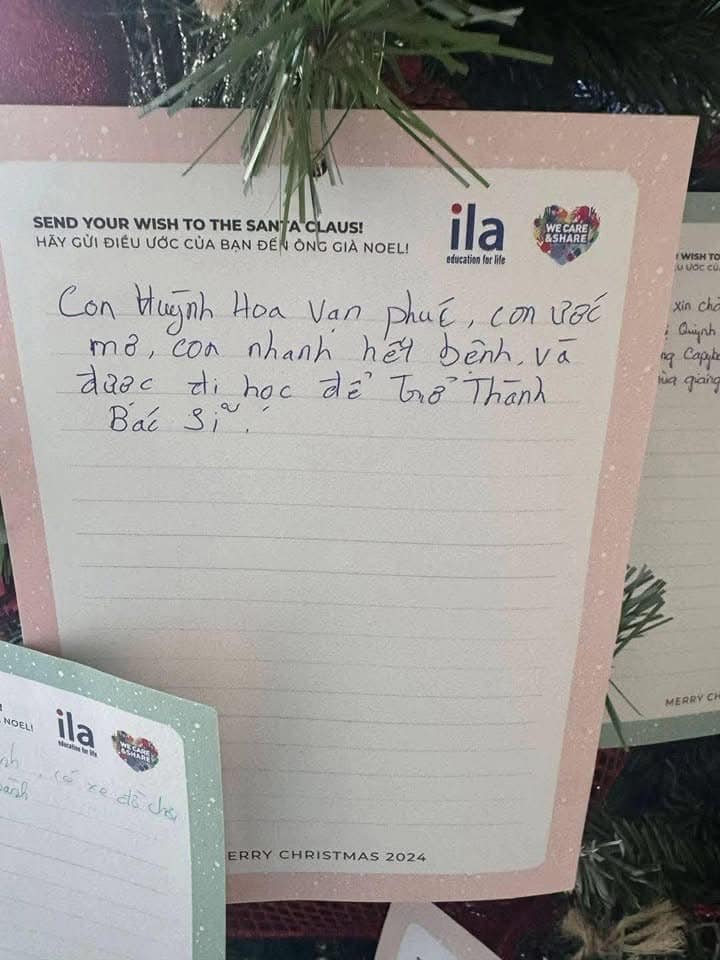 SEND YOUR WISH TO THE SANTA CLAUS!
HÃY GỬI ĐIỀU ƯỚC CỦA BẠN ĐẾN ÔNG GIÀ NOEL!
ila
education for life
WE CARE
&SHARE
Con Huỳnh Hoa Vạn phúc, con ước
mơ, con nhanh hết bệnh, và
được đi học để Trở Thành
Bác Sĩ.
ERRY CHRISTMAS 2024
WISH TO
xin
Quỳnh
MERRY CH
NOEL!
ila
education for life
WE CARE
&SHARE
có xe đồ chơi